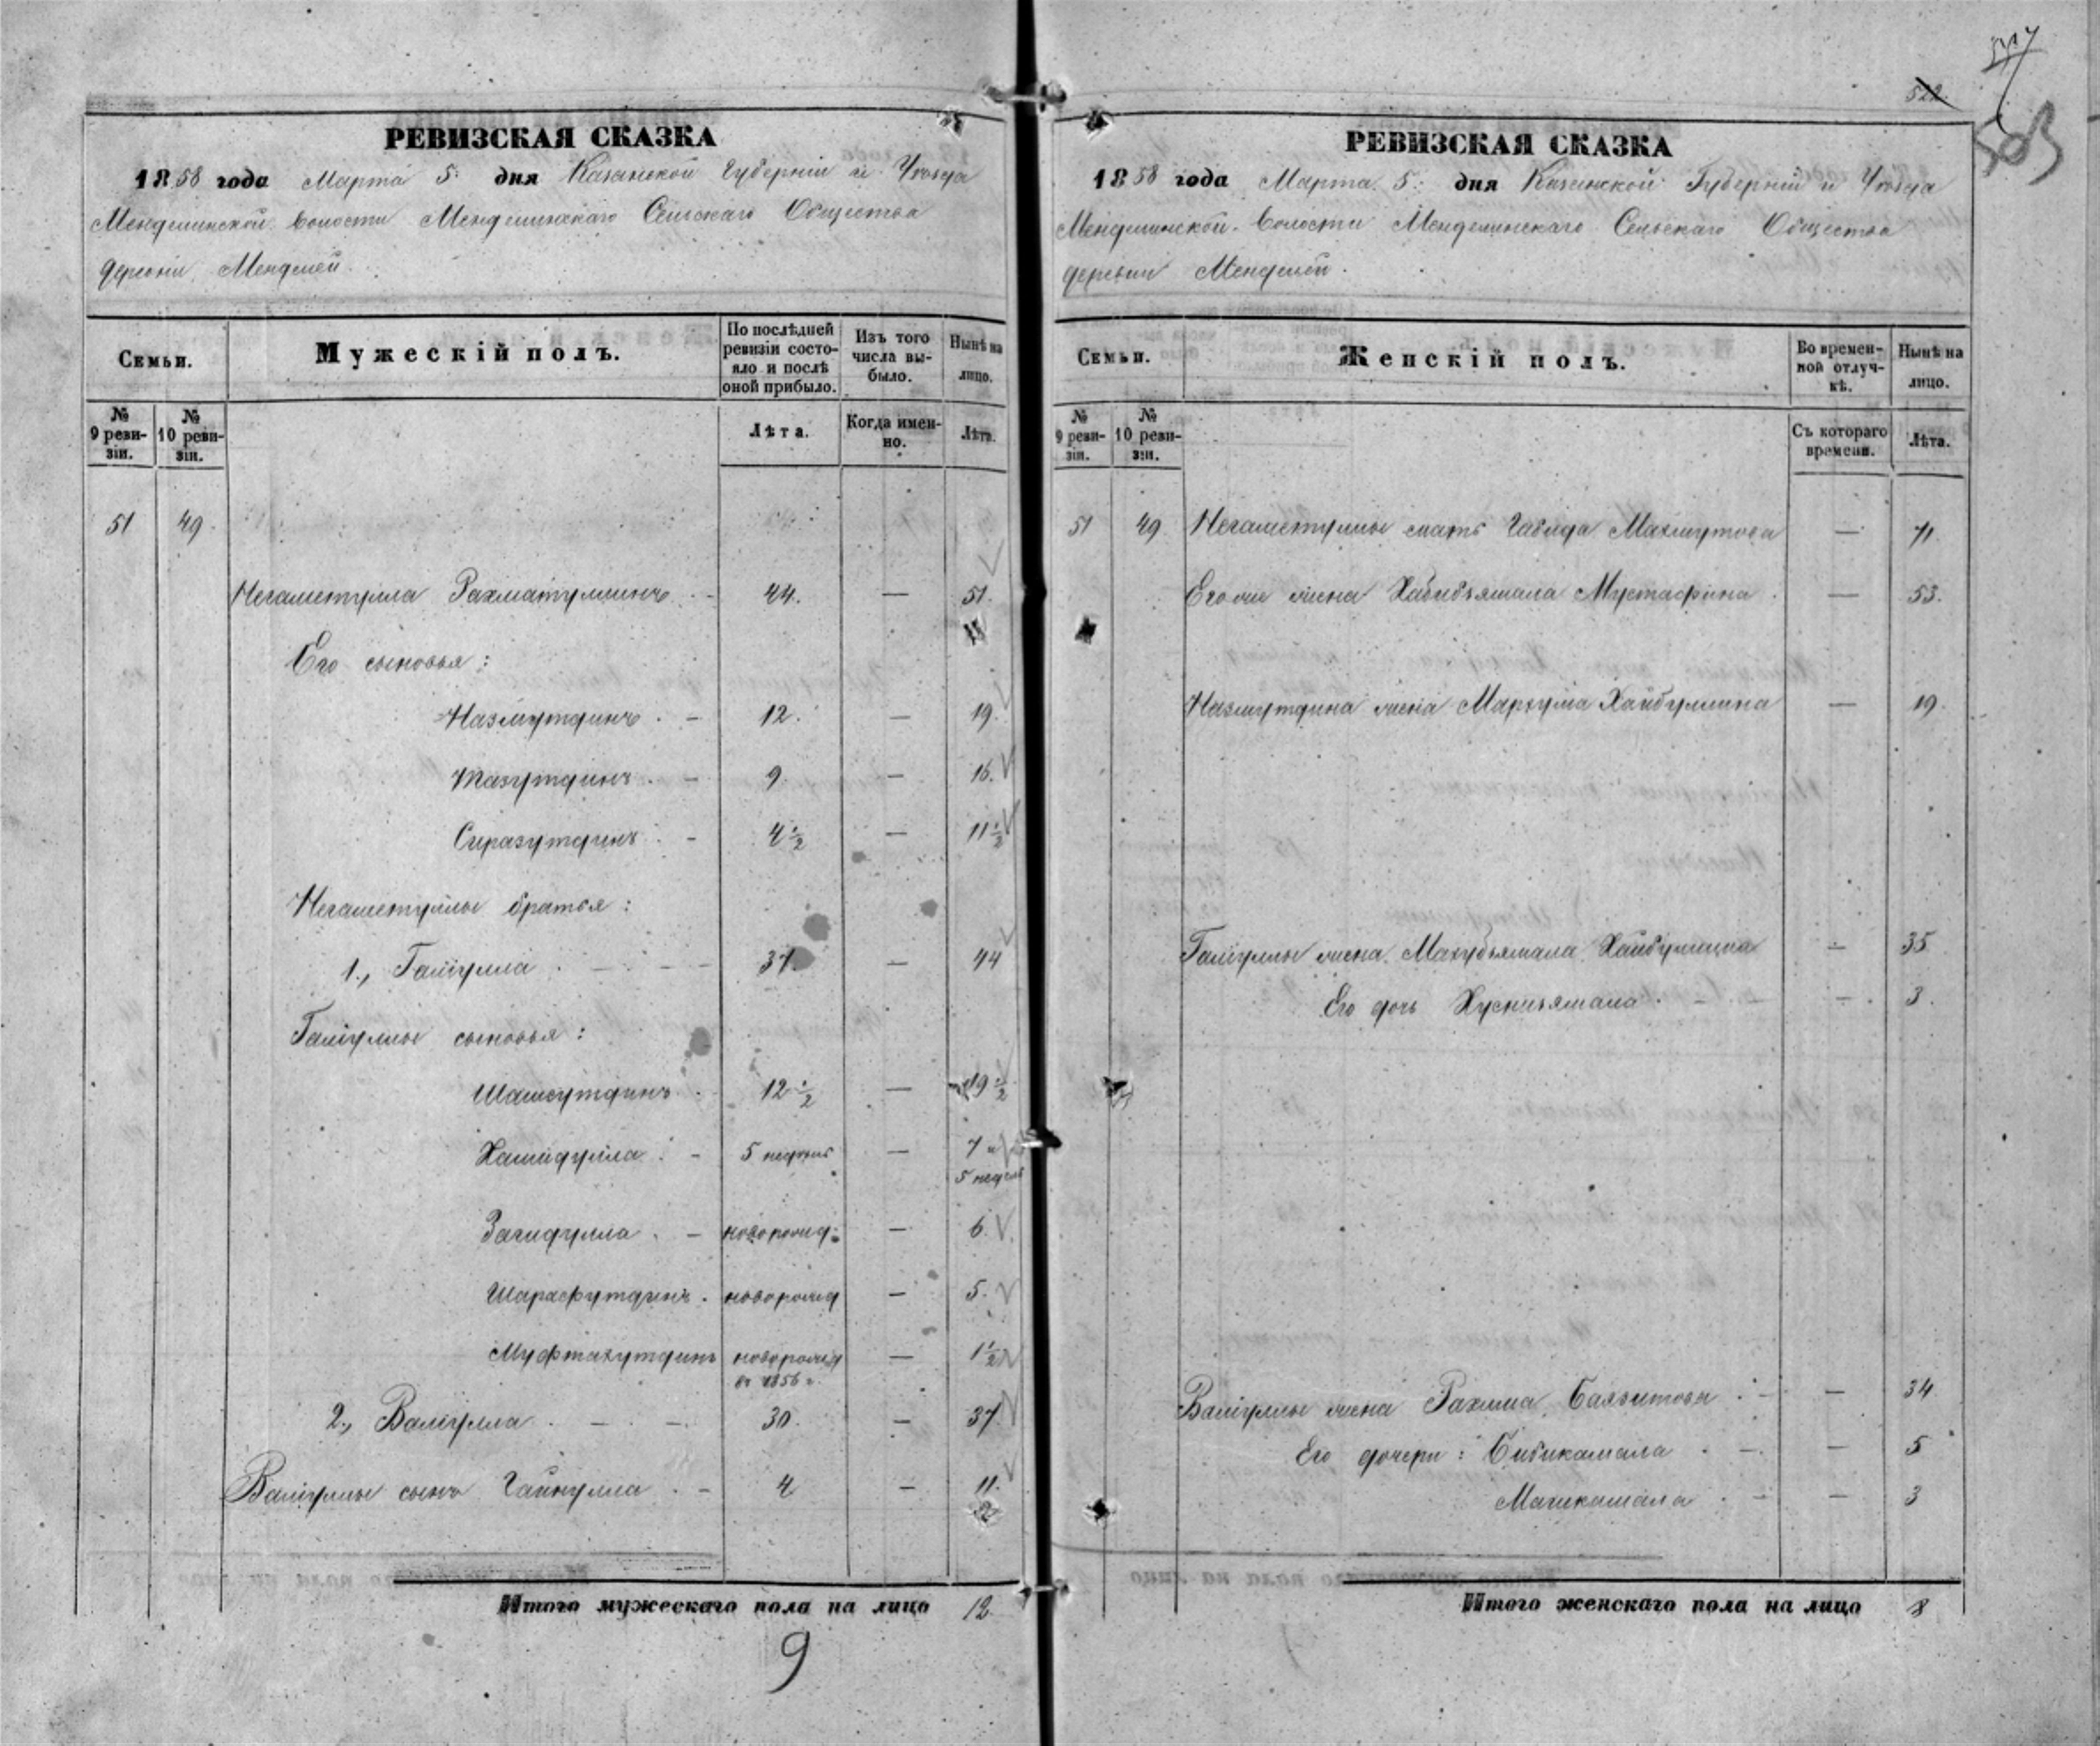 522
503
РЕВИЗСКАЯ СКАЗКА
1858 года Марта 5: дня Казанской Губерніи и Уѣзда
Менделинской волости Менделинскаго Сельскаго Общества
деревни Менделей.
Семьи.
Мужескій полъ.
По послѣдней ревизіи состояло и послѣ оной прибыло.
Изъ того числа выбыло.
Нынѣ на лицо.
№ 9 ревизіи.
№ 10 ревизіи.
Лѣта.
Когда именно.
Лѣта.
51 49
Негаметулла Рахматуллинъ - 44. — 51.
Его сыновья:
Назмутдинъ. - 12. — 19.
Тазутдинъ. - 9. — 16.
Сиразутдинъ. - 4½ — 11½
Негаметуллы братья:
1., Галіулла. - - - 37. — 44
Галіуллы сыновья:
Шамсутдинъ. 12½ — 19½
Хамидулла. - 5 недѣль — 7 и 5 недѣль
Загидулла. - новорожд: — 6.
Шарафутдинъ. новорожд — 5.
Муфтахутдинъ новорожд въ 1856 г. — 1½
2., Валіулла. - - 30. — 37.
Валіуллы сынъ Гайнулла. - 4 — 11.
Итого мужескаго пола на лицо 12
9
РЕВИЗСКАЯ СКАЗКА
1858 года Марта 5: дня Казанской Губерніи и Уѣзда
Менделинской волости Менделинскаго Сельскаго Общества
деревни Менделей.
Семьи.
Женскій полъ.
Во временной отлучкѣ.
Нынѣ на лицо.
№ 9 ревизіи.
№ 10 ревизіи.
Съ котораго времени.
Лѣта.
51 49 Негаметуллы мать Габида Махмутова — 71.
Его же жена Хабибзямала Мустафина. — 53.
Назмутдина жена Мархума Хайбуллина — 19.
Галіуллы жена Махубзямала Хайбуллина — 35
Его дочь Хуснизямала. - - — 3.
Валіуллы жена Рахима Баязитова. - — 34
Его дочери: Бибикамала. - — 5
Магикамала. - — 3
Итого женскаго пола на лицо 8